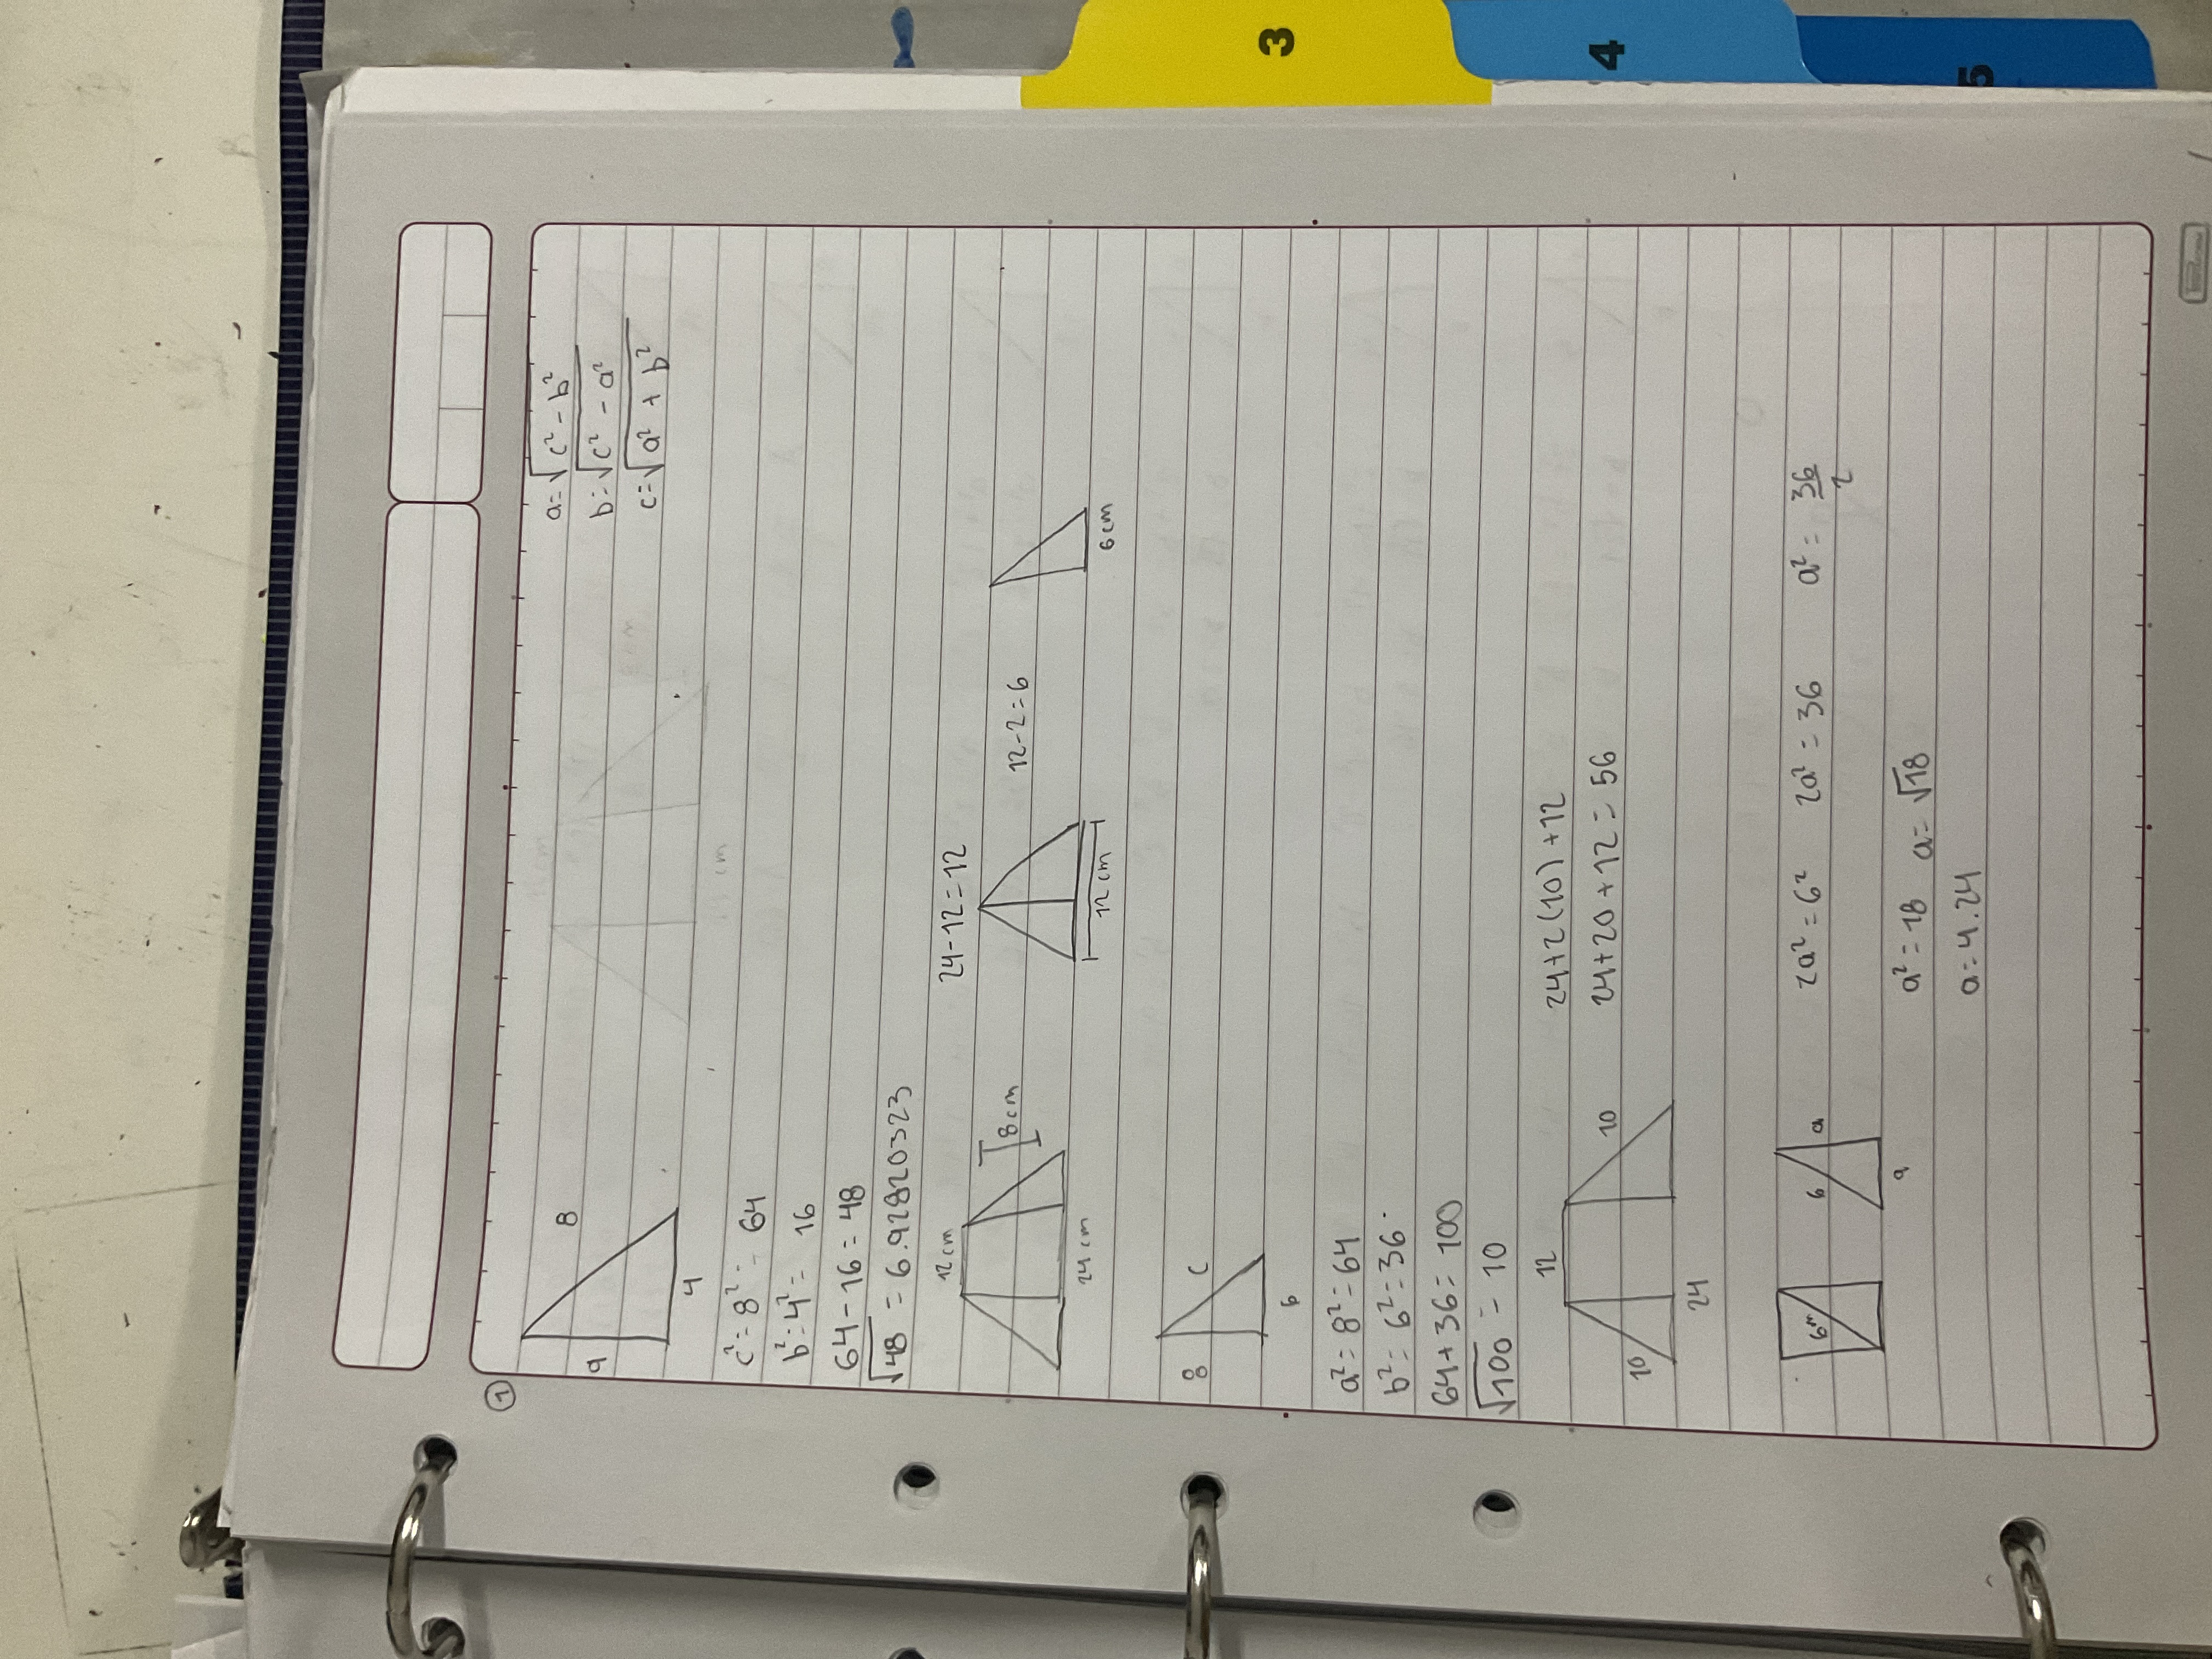 3
4
5
1
a=√c² - b²
b=√c² - a²
c=√a² + b²
8
a
4
c²=8²= 64
b²=4²= 16
64-16=48
√48 = 6.92820323
12cm
8cm
24cm
24-12=12
12cm
12-2=6
6cm
8
c
6
a²=8²=64
b²=6²=36
64+36=100
√100 = 10
12
10
10
24
24+2(10)+12
24+20+12=56
6m
6
a
a
2a²=6² 2a²=36 a²=36/2
a²=18 a=√18
a=4.24